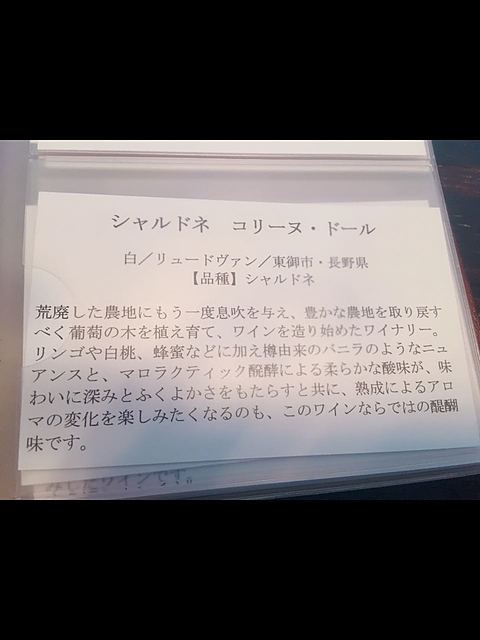 シャルドネ　コリーヌ・ドール
白／リュードヴァン／東御市・長野県
【品種】シャルドネ
荒廃した農地にもう一度息吹を与え、豊かな農地を取り戻す
べく葡萄の木を植え育て、ワインを造り始めたワイナリー。
リンゴや白桃、蜂蜜などに加え樽由来のバニラのようなニュ
アンスと、マロラクティック醗酵による柔らかな酸味が、味
わいに深みとふくよかさをもたらすと共に、熟成によるアロ
マの変化を楽しみたくなるのも、このワインならではの醍醐
味です。